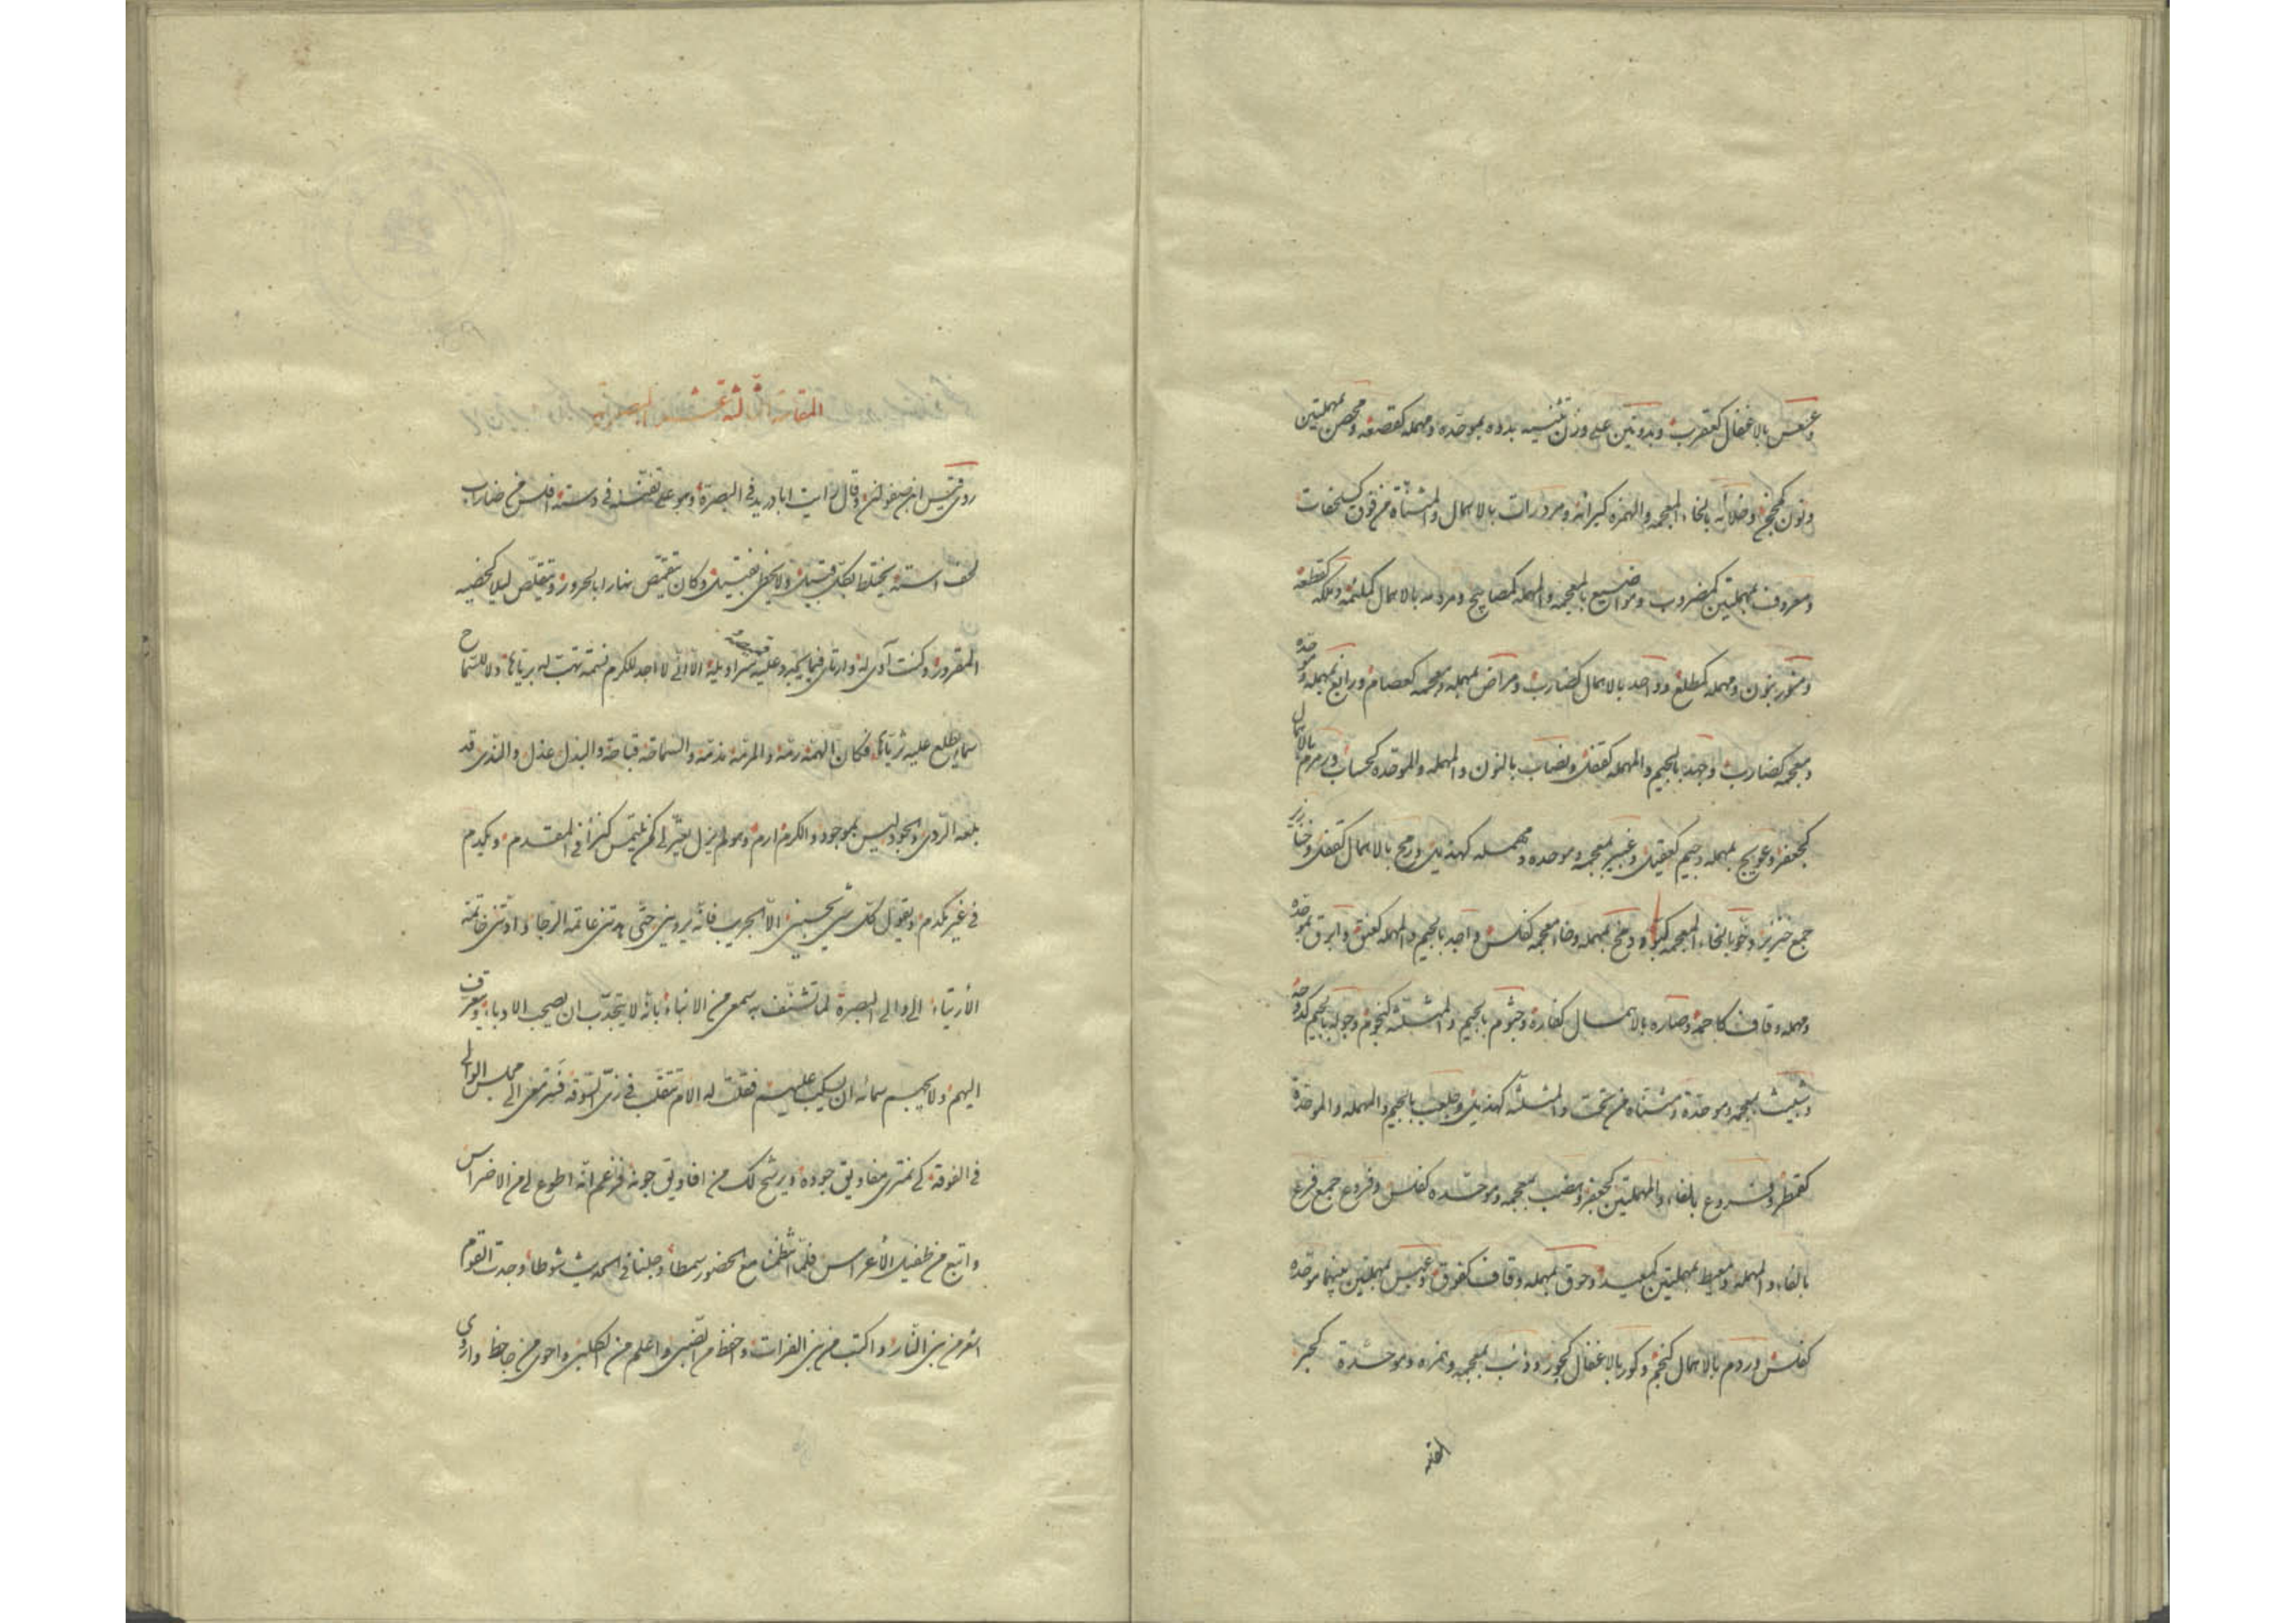 وعنعس بالاغفال كعقرب وبدوتين على وزن تثنيه بدوه بموحده ومهمله كقصعه ومحصن بمهملتين
ونون كمجنح وخلأبه بالخاء المعجمه والهمزه كبرائه ومردرات بالاهمال والمثناة من فوق
ومعروف بمهملتين كمضروب ومواضيع بالمعجمه والمهمله كمصابيح ومردمه بالاهمال وعكه كقطعه
بنون ومهمله كمطلع وواحد بالاهمال كضارب ومراض بمهمله ومعجمه كعصام ورابغ بمهمله وموحده
ومعجمه كضارب وجهد بالجيم والمهمله كقفل ونصاب بالنون والمهمله والموحده كحساب ورمرم بالاهمال
كجعفر وعويج بمهمله وجيم وغبير بمعجمه وموحده ومهمله كهذيل ورمح بالاهمال كقفل وخنازير
جمع خنزير وخو بالخاء المعجمه ودمخ بمهمله وخاء معجمه كفلس واجد بالجيم والمهمله كعنق وابرق بموحده
ومهمله وقاف كاحمد وصاره بالاهمال كفاره وجثوم بالجيم والمثلثه كنجوم وجوله بالجيم كدوحه
وشبيث بمعجمه وموحدة ومثناه من تحت والمثلثه كهذيل وجلعب بالجيم والمهمله والموحدة
كقمطر وفروع بالفاء والمهملتين كجعفر وهضب بمعجمه وموحده كفلس وفروع جمع فرع
بالفاء والمهمله ومعيط بمهملتين كمعيد وحوق بمهمله وقاف كفوق وعبس بمهملتين بينهما موحده
كفلس وردم بالاهمال كنجم وكور بالاغفال كجور وذئب بمعجمه وهمزه وموحدة كحبر
المقامة الثالثة عشر البصرية
روى قيس ابن صفوان وقال رايت ابا دريد في البصرة وهو على تفننه في دسته افلس من ضارب
لحف استه يختلط بكل قبيل ولا يحظى بفتيل وكان يتقمص نهارا بالحرور ويتقلص ليلا كخصيه
المقرور وكنت آوى له وارثى فيما يجبر عليه سراويله الا انى لا اجد للكرم نسمة تهب له برياها ولا للسماح
سماء يطلع عليه ثرياها فكان الهمه رمه والمرمه مذمه والسماحه قباحه والبذل عذل والندى قد
بلغه الردى والجود ليس بموجود والكرم ارم وهو لم يزل يغبر كمن يلتمس كنزا في المقدم ويكدم
في غير مكدم ويقول كل شئ يحسبنى الا الجريب فانه يروينى حتى هدتنى خاتمة الرجاء وادتنى خاتمة
الأرتياء الى والى البصرة لما تشنف به سمعى من الانباء بانه لا يتجذب ان يصحب الادباء ويتعرف
اليهم ولا يجهم سمائه ان يسكب عليهم فقلت له الام تتقلب في زى السوقه فسر معى الى مجلس الوالى
في الغوفة كى تمترى مفاويق جوده ويرشح لك من افاويق جونه فزعم انه اطوع لى من الاضراس
واتبع من طفيل الأعراس فلما انتظمنا مع الحضور سمطا وجلنا في الحديث شوطا وجدت القوم
اشعر من بنى النار واكتب من بنى الفرات واحفظ من الضبى واعلم من الكلبى واحوى من جاحظ واروى